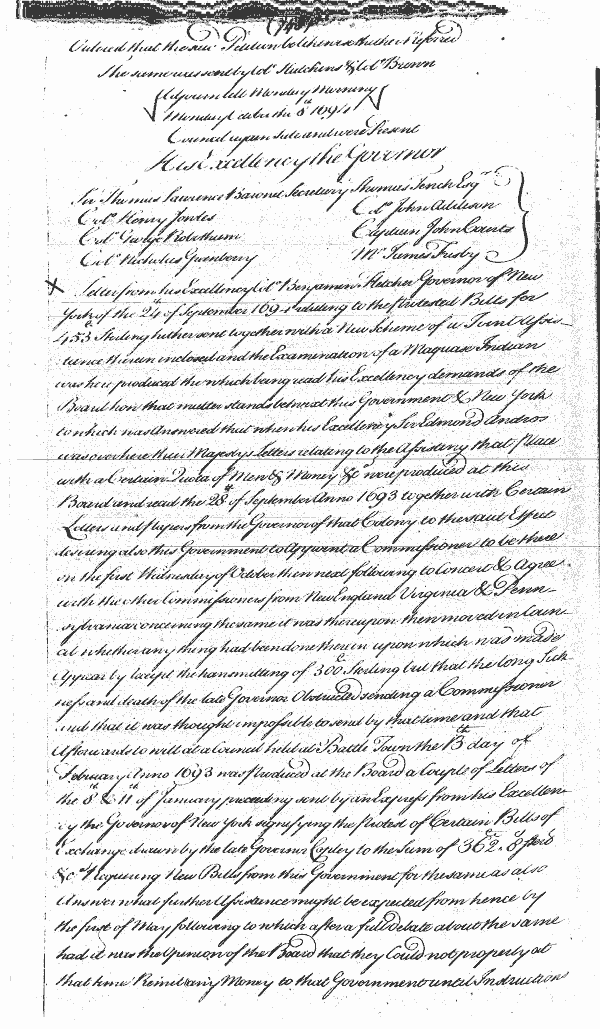 (143)
Ordered that the said Petition be likewise thither referred
The same was sent by Col.o Hutchins & Col.o Brown
Adjourn till Monday Morning
Monday October the 8th 1694
Council again sate and were Present
His Excellency the Governor
Sir Thomas Lawrence Baronet Secretary Thomas Tench Esqr
Col.o Henry Jowles Col.o John Addison
Col.o George Robotham Captain John Courts
Col.o Nicholas Greenberry Mr James Frisby
X Letter from his Excellency Col.o Benjamin Fletcher Governor of New
York of the 24th of September 1694 relating to the Protested Bills for
453£ Sterling hither sent together with a New Scheme of a Joint Assis-
tance therein inclosed and the Examination of a Maquase Indian
was here produced the which being read his Excellency demands of the
Board how that matter stands betwixt this Government & New York
to which was Answered that when his Excellency Sir Edmond Andros
was over here their Majestys Letters relating to the Assisting that place
with a Certain Quota of Men & Money &c were produced at this
Board and read the 28th of September Anno 1693 together with Certain
Letters and papers from the Governor of that Colony to the said Effect
desiring also this Government to Appoint a Commissioner to be there
on the first Wednesday of October then next following to Concert & Agree
with the other Commissioners from New England Virginia & Penn-
sylvania concerning the same it was thereupon then moved in Coun-
cil whether any thing had been done therein upon which was made
Appear by except the transmitting of 300£ Sterling but that the long Sick-
ness and death of the late Governor Obstructed sending a Commissioner
and that it was thought impossible to send by that time and that
Afterwards to wit at a Council held at Battle Town the 13th day of
February Anno 1693 was produced at the Board a Couple of Letters of
the 8th & 11th of January preceeding sent by an Express from his Excellen-
cy the Governor of New York signifying the Protest of Certain Bills of
Exchange drawn by the late Governor Copley to the Sum of 362£. 8s
&c Requiring New Bills from this Government for the same as also
Answer what further Assistance might be expected from hence by
the first of May following to which after a full debate about the same
had it was the Opinion of the Board that they Could not properly at
that time Reimb any Money to that Government until Instructions